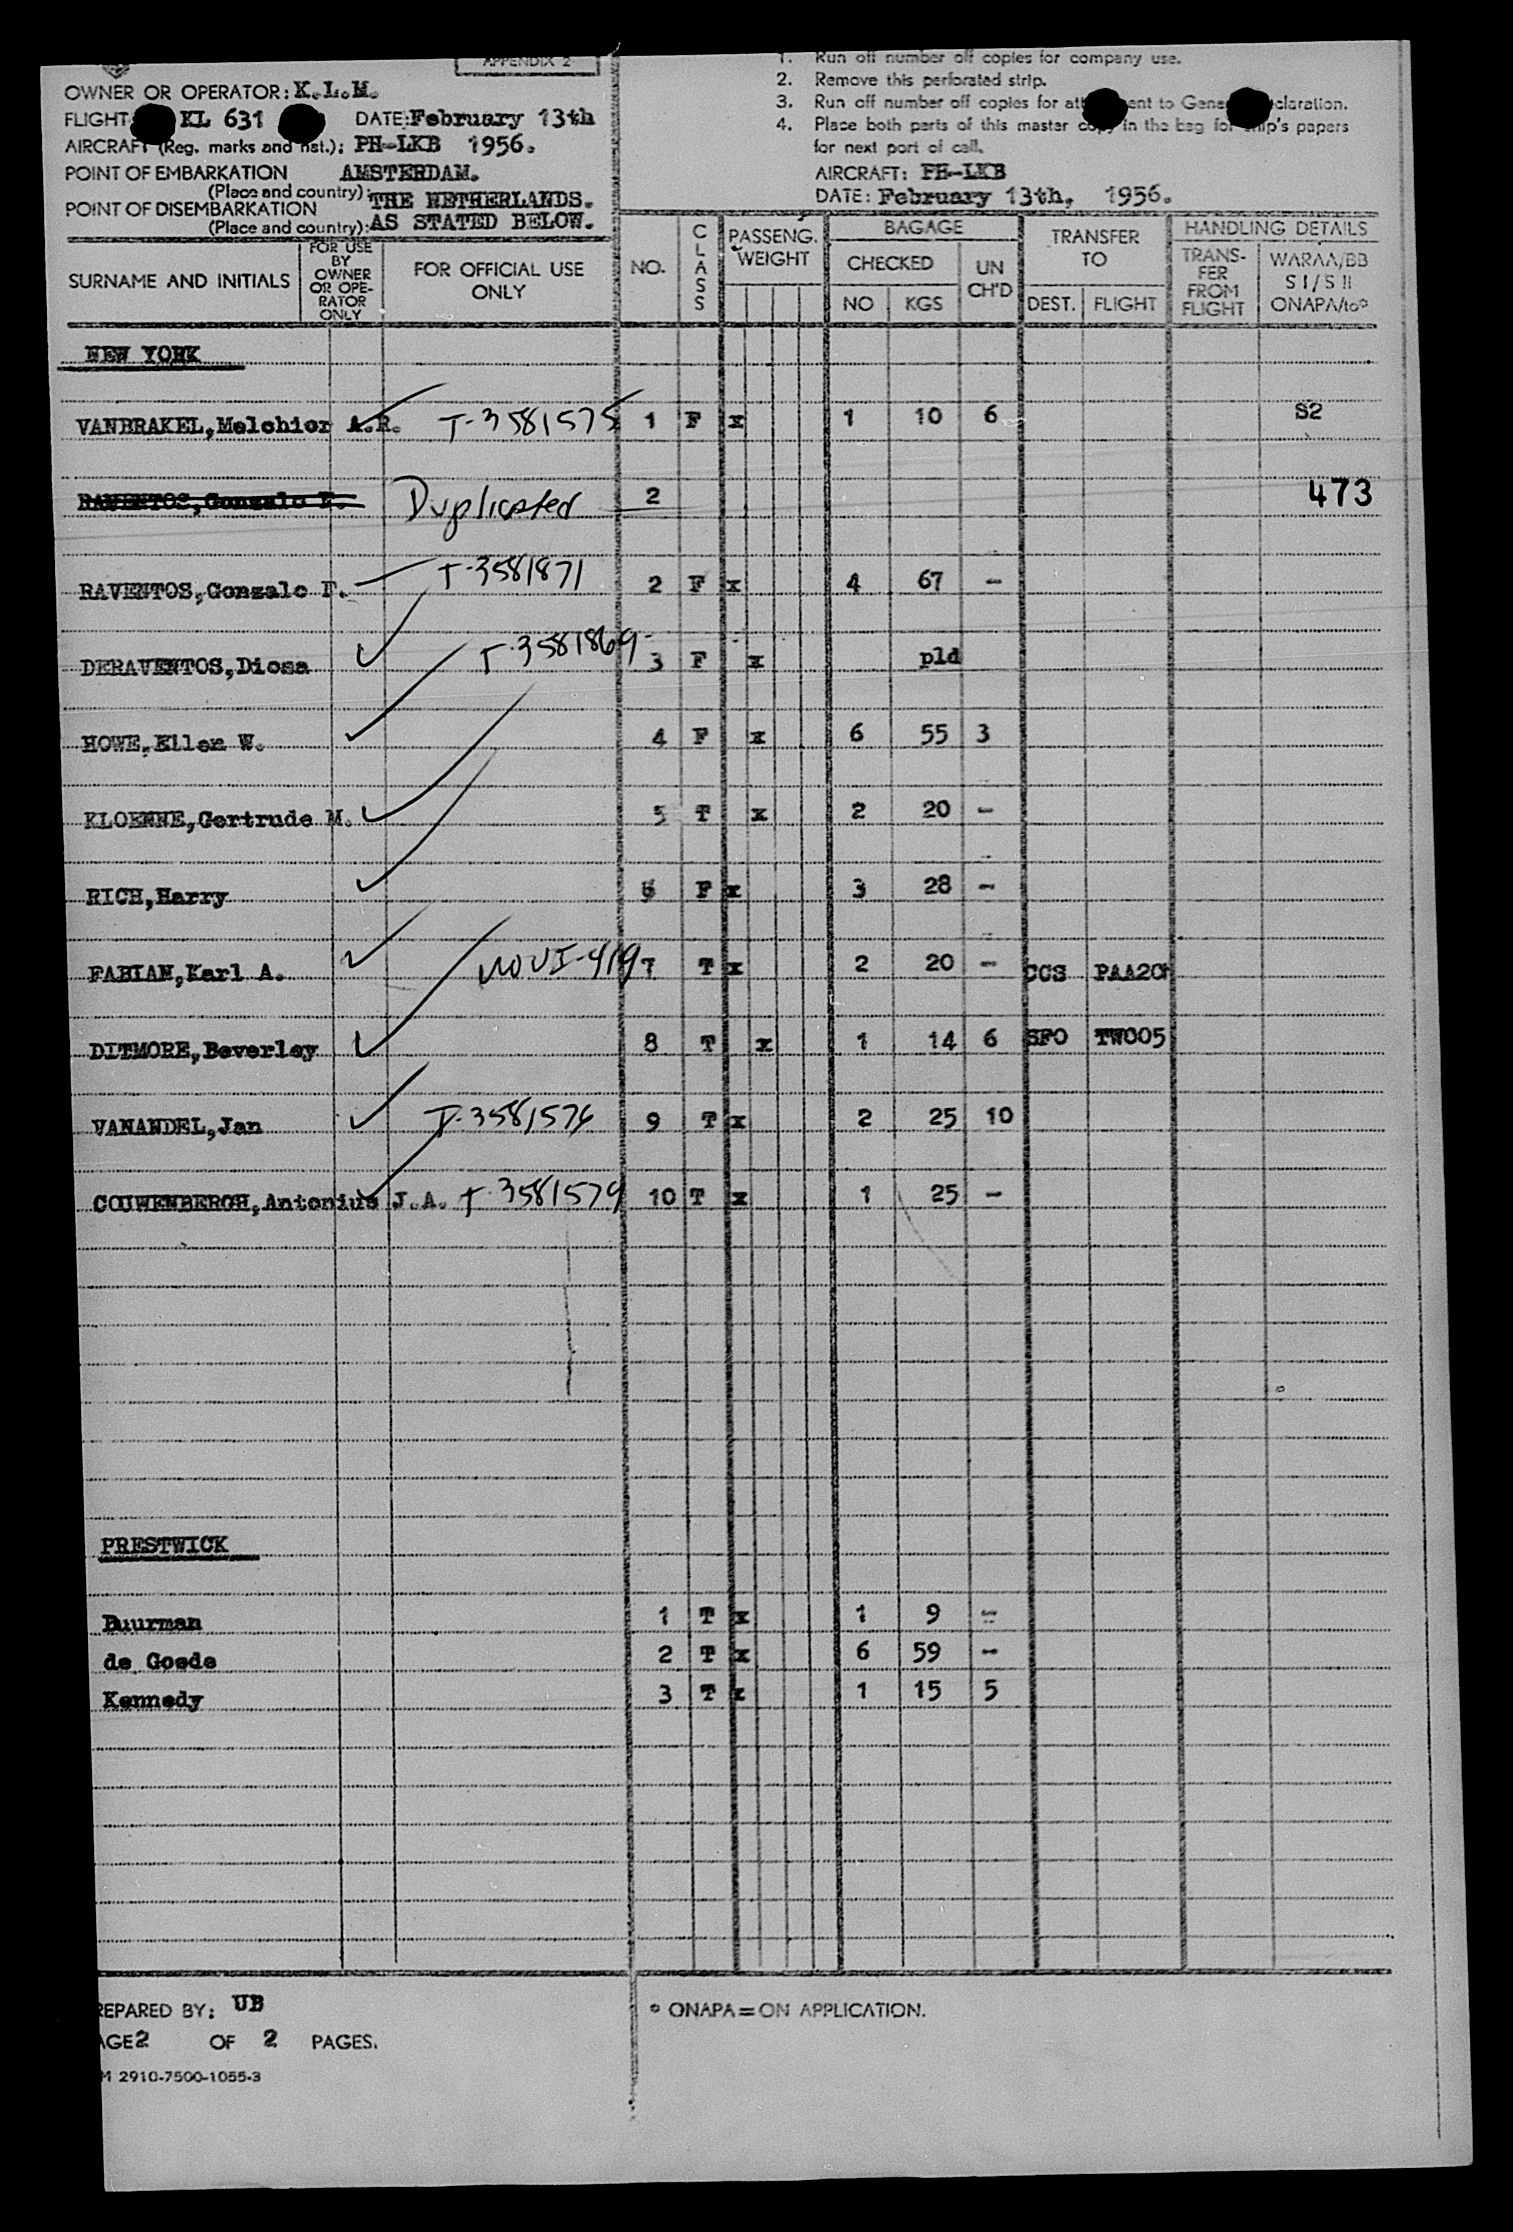 APPENDIX 2
OWNER OR OPERATOR: K.L.M.
FLIGHT KL 631 DATE: February 13th
AIRCRAFT (Reg. marks and nat.): PH-LKB 1956.
POINT OF EMBARKATION AMSTERDAM.
(Place and country): THE NETHERLANDS.
POINT OF DISEMBARKATION
(Place and country): AS STATED BELOW.
1. Run off number off copies for company use.
2. Remove this perforated strip.
3. Run off number off copies for
4. Place both parts of this master copy in the bag for ship's papers
for next port of call.
AIRCRAFT: PH-LKB
DATE: February 13th, 1956.
SURNAME AND INITIALS
FOR USE BY OWNER OR OPE-RATOR ONLY
FOR OFFICIAL USE ONLY
NO.
CLASS
PASSENG. WEIGHT
BAGAGE
CHECKED
NO KGS
UN CH'D
TRANSFER TO
DEST. FLIGHT
HANDLING DETAILS
TRANS-FER FROM FLIGHT
WARAA/BB S I / S II ONAPA/to°
NEW YORK
VANBRAKEL, Melchior A.R. T-3581575 1 F x 1 10 6 S2
RAVENTOS, Gonzalo F. Duplicated 2 473
RAVENTOS, Gonzalo F. T-3581871 2 F x 4 67 -
DERAVENTOS, Diosa T-3581869 3 F x pld
HOWE, Ellen W. 4 F x 6 55 3
KLOENNE, Gertrude M. 5 T x 2 20 -
RICH, Harry F x 3 28 -
FABIAN, Karl A. 7 T x 2 20 - CCS
DITMORE, Beverley 8 T x 1 14 6 SFO TW005
VANANDEL, Jan T-3581576 9 T x 2 25 10
COUWENBERGH, Antonius J.A. T-3581579 10 T x 1 25 -
PRESTWICK
Buurman 1 T x 1 9 -
de Goede 2 T x 6 59 -
Kennedy 3 T x 1 15 5
REPARED BY: UB
AGE 2 OF 2 PAGES.
M 2910-7500-1055-3
° ONAPA = ON APPLICATION.